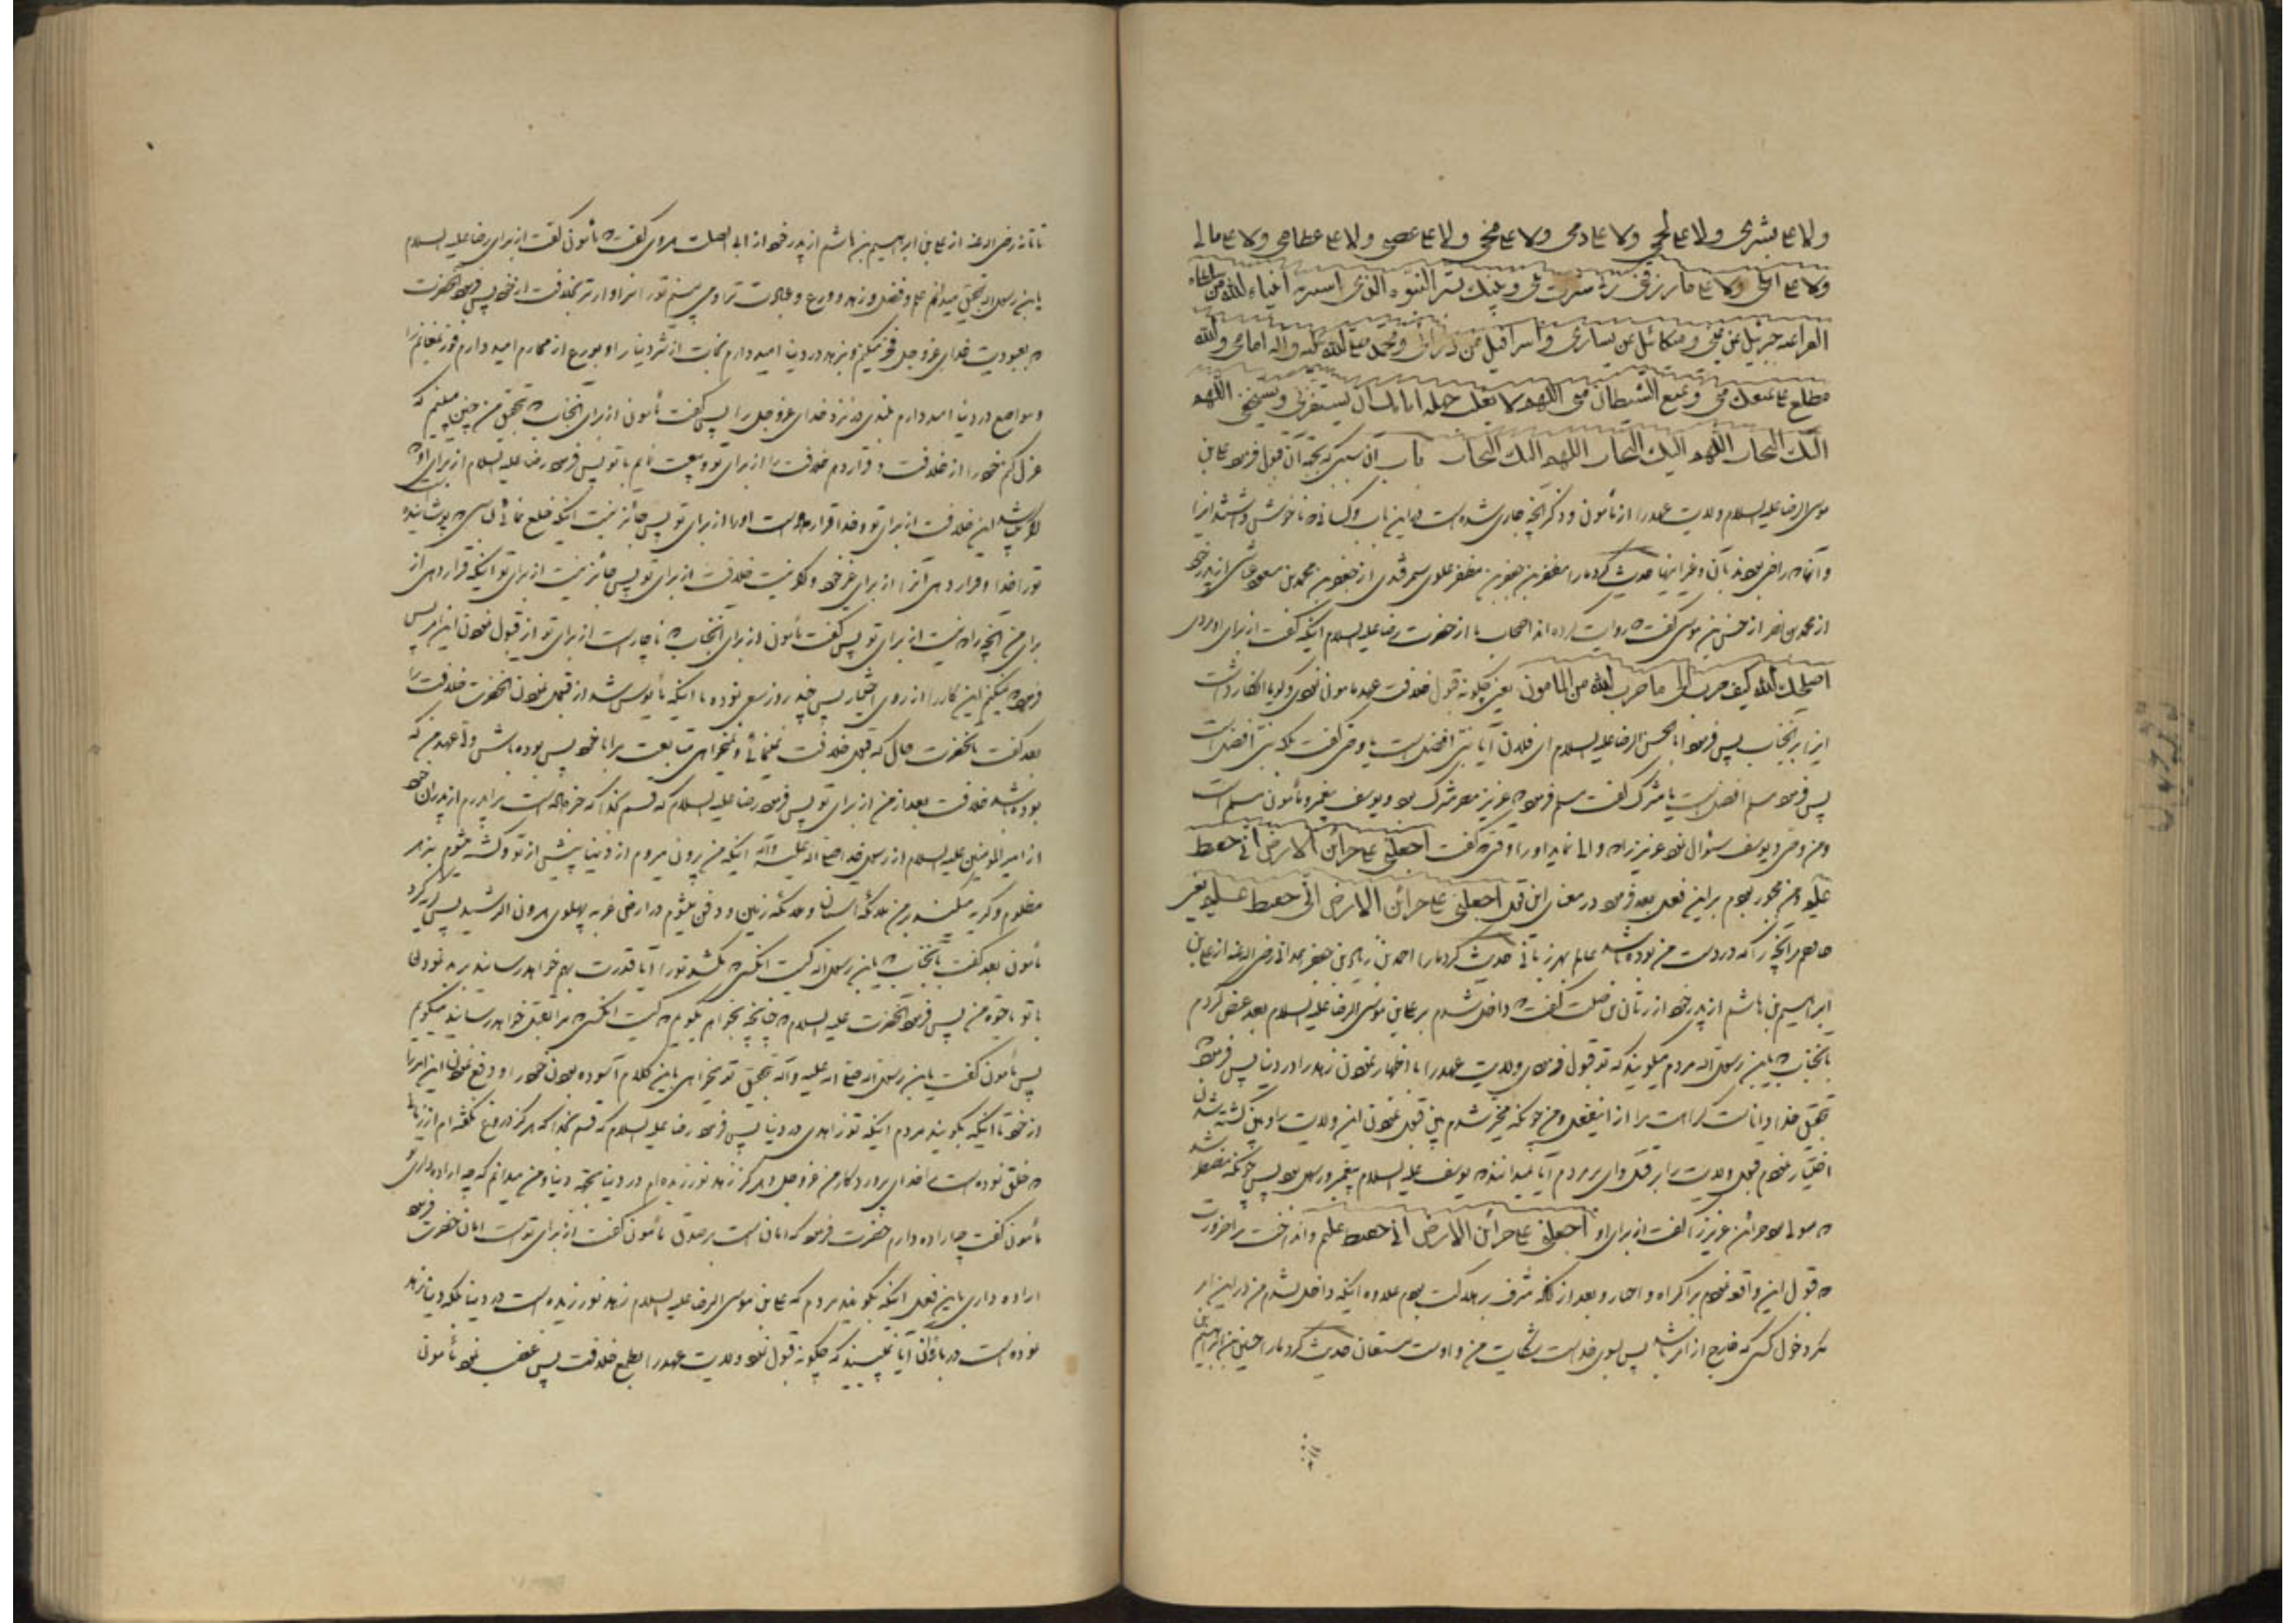 ولا علی بشری ولا علی لحمی ولا علی دمی ولا علی مخی ولا علی عصبی ولا علی عظامی ولا علی مالی
ولا علی اهلی ولا علی ما رزقنی ربی سترت بینی وبینک بستر النبوه الذی استتر انبیاء الله من
الفراعنه جبرئیل عن یمینی ومیکائیل عن یساری واسرافیل من ورائی ومحمد صلی الله علیه واله امامی والله
مطلع علی یمنعک منی ویمنع الشیطان منی اللهم لا یغلب جهله اناتک ان یستفزنی ویستخفنی اللهم
الیک التجات اللهم الیک التجات اللهم الیک التجات باب آن سببی که بجهة آن قبول فرمود علی بن
موسی الرضا علیه السلام ولایت عهد را از مأمون و ذکر آنچه جاری شده است در این باب و کسانی که ناخوش داشتند اینرا
و آنها که راضی بودند بآن و غیر اینها حدیث کرد ما را مظفر بن جعفر بن مظفر علوی سمرقندی از جعفر بن محمد بن مسعود عیاشی از پدر خود
از محمد بن نصر از حسن بن موسی گفت که روایت کرده اند اصحاب ما از حضرت رضا علیه السلام اینکه گفت از برای او مردی
اصلحک الله کیف صرت الی ما صرت الیه من المامون یعنی چگونه قبول خلافت عهد مامون نمودی و گویا انکار داشت
اینرا بر آنجناب پس فرمود ابا الحسن الرضا علیه السلام ای فلان آیا نبی افضل است یا وصی گفت بلکه نبی افضل است
پس فرمود مسلم افضل است یا مشرک گفت مسلم فرمود که عزیز مصر مشرک بود و یوسف پیغمبر و مأمون مسلم است
و من وصی و یوسف سئوال نمود عزیز را که والی نماید او را وقتی که گفت اجعلنی علی خزائن الارض انی حفیظ
علیم و من مجبور بودم بر این فعل بعد فرمود در معنی این قول اجعلنی علی خزائن الارض انی حفیظ علیم یعنی
حافظم مر آنچه را که در دست من بوده باشد عالم بهر زبانی حدیث کرد ما را احمد بن زیاد بن جعفر همدانی رضی الله عنه از علی بن
ابراهیم بن هاشم از پدر خود از ریان بن صلت گفت که داخل شدم بر علی بن موسی الرضا علیه السلام بعد عرض کردم
بآنجناب که یابن رسول الله مردم میگویند که تو قبول فرمودی ولایت عهد را با اظهار نمودن زهد را در دنیا پس فرمود که
بتحقیق خدا دانا است کراهت مرا از اینفعل و من چونکه مخیر شدم بین قبول نمودن این ولایت را و بین کشته شدن
اختیار نمودم قبول ولایت را بر قتل وای بر مردم آیا نمیدانند که یوسف علیه السلام پیغمبر و رسول بود پس چونکه مضطر شد
که متولی شود خزائن عزیز را گفت از برای او اجعلنی علی خزائن الارض انی حفیظ علیم و انداخت مرا ضرورت
که قبول این واقعه نمودم بر اکراه و اجبار و بعد از آنکه مشرف بر هلاکت بودم علاوه اینکه داخل نشدم من در این امر
مگر دخول کسی که خارج از امر باشد پس بسوی خداست شکایت من و اوست مستعان حدیث کرد ما را حسین بن ابراهیم بن
تاتانه رضی الله عنه از علی بن ابراهیم بن هاشم از پدر خود از ابی الصلت هروی گفت که مأمون گفت از برای رضا علیه السلام
یابن رسول الله بتحقیق میدانم علم و فضل و زهد و ورع و عبادت ترا و می بینم تو را سزاوارتر بخلافت از خود پس فرمود آنحضرت
که بعبودیت خدای عز و جل فخر میکنم و بزهد در دنیا امید دارم نجات از شر دنیا را و بورع از محارم امید دارم فوز بغنائم را
و بتواضع در دنیا امید دارم بلندی در نزد خدای عز و جل را پس گفت مأمون از برای آنجناب که بتحقیق من چنین میبینم که
عزل کنم خود را از خلافت و قرار دهم خلافت را از برای تو و بیعت نمایم با تو پس فرمود رضا علیه السلام از برای او که
اگر باشد این خلافت از برای تو و خدا قرار داده است او را از برای تو پس جائز نیست اینکه خلع نمائی لباسی که پوشانیده است
تو را خدا و قرار دهی آنرا از برای غیر خود و اگر نیست خلافت از برای تو پس جائز نیست از برای تو اینکه قرار دهی از
برای من آنچه را که نیست از برای تو پس گفت مأمون از برای آنجناب که ناچار است از برای تو از قبول نمودن این امر پس
فرمود که نمیکنم این کار را از روی اختیار پس چند روز سعی نموده تا اینکه مأیوس شد از قبول نمودن آنحضرت خلافت را
بعد گفت بآنحضرت حال که قبول خلافت نمینمائی و نمیخواهی متابعت مرا با خود پس بوده باش ولی عهد من که
بوده باشد خلافت بعد از من از برای تو پس فرمود رضا علیه السلام که قسم بخدا که خبر داده است مرا پدرم از پدران خود
از امیر المومنین علیه السلام از رسول خدا صلی الله علیه وآله اینکه من بیرون میروم از دنیا پیش از تو و کشته میشوم بزهر
مظلوم و گریه میکنند بر من ملائکه آسمان و ملائکه زمین و دفن میشوم در ارض غربه پهلوی هرون الرشید پس گریه کرد
مأمون بعد گفت بآنجناب که یابن رسول الله کیست آنکس که بکشد تو را آیا قدرت بهم خواهد رسانید بر بد نمودن
با تو با حیوة من پس فرمود آنحضرت علیه السلام که چنانچه بخواهم بگویم که کیست آنکس که مرا بقتل خواهد رسانید میگویم
پس مأمون گفت یابن رسول الله صلی الله علیه وآله بتحقیق تو میخواهی باین کلام آسوده نمودن خود را و دفع نمودن این امر را
از خود تا اینکه بگویند مردم اینکه تو زاهدی در دنیا پس فرمود رضا علیه السلام که قسم بخدا که هرگز دروغ نگفته ام از زمانی
که خلق نموده است مرا خدای پروردگار من عز و جل و هرگز زهد نورزیده ام در دنیا بجهة دنیا و من میدانم که چه اراده داری تو
مأمون گفت چه اراده دارم حضرت فرمود که امان است بر صدق مأمون گفت از برای تو است امان حضرت فرمود
اراده داری باین فعل اینکه بگویند مردم که علی بن موسی الرضا علیه السلام زهد نورزیده است در دنیا بلکه دنیا زهد
نموده است در باره او آیا نمیبینید که چگونه قبول نمود ولایت عهد را بطمع خلافت پس غضب نمود مأمون